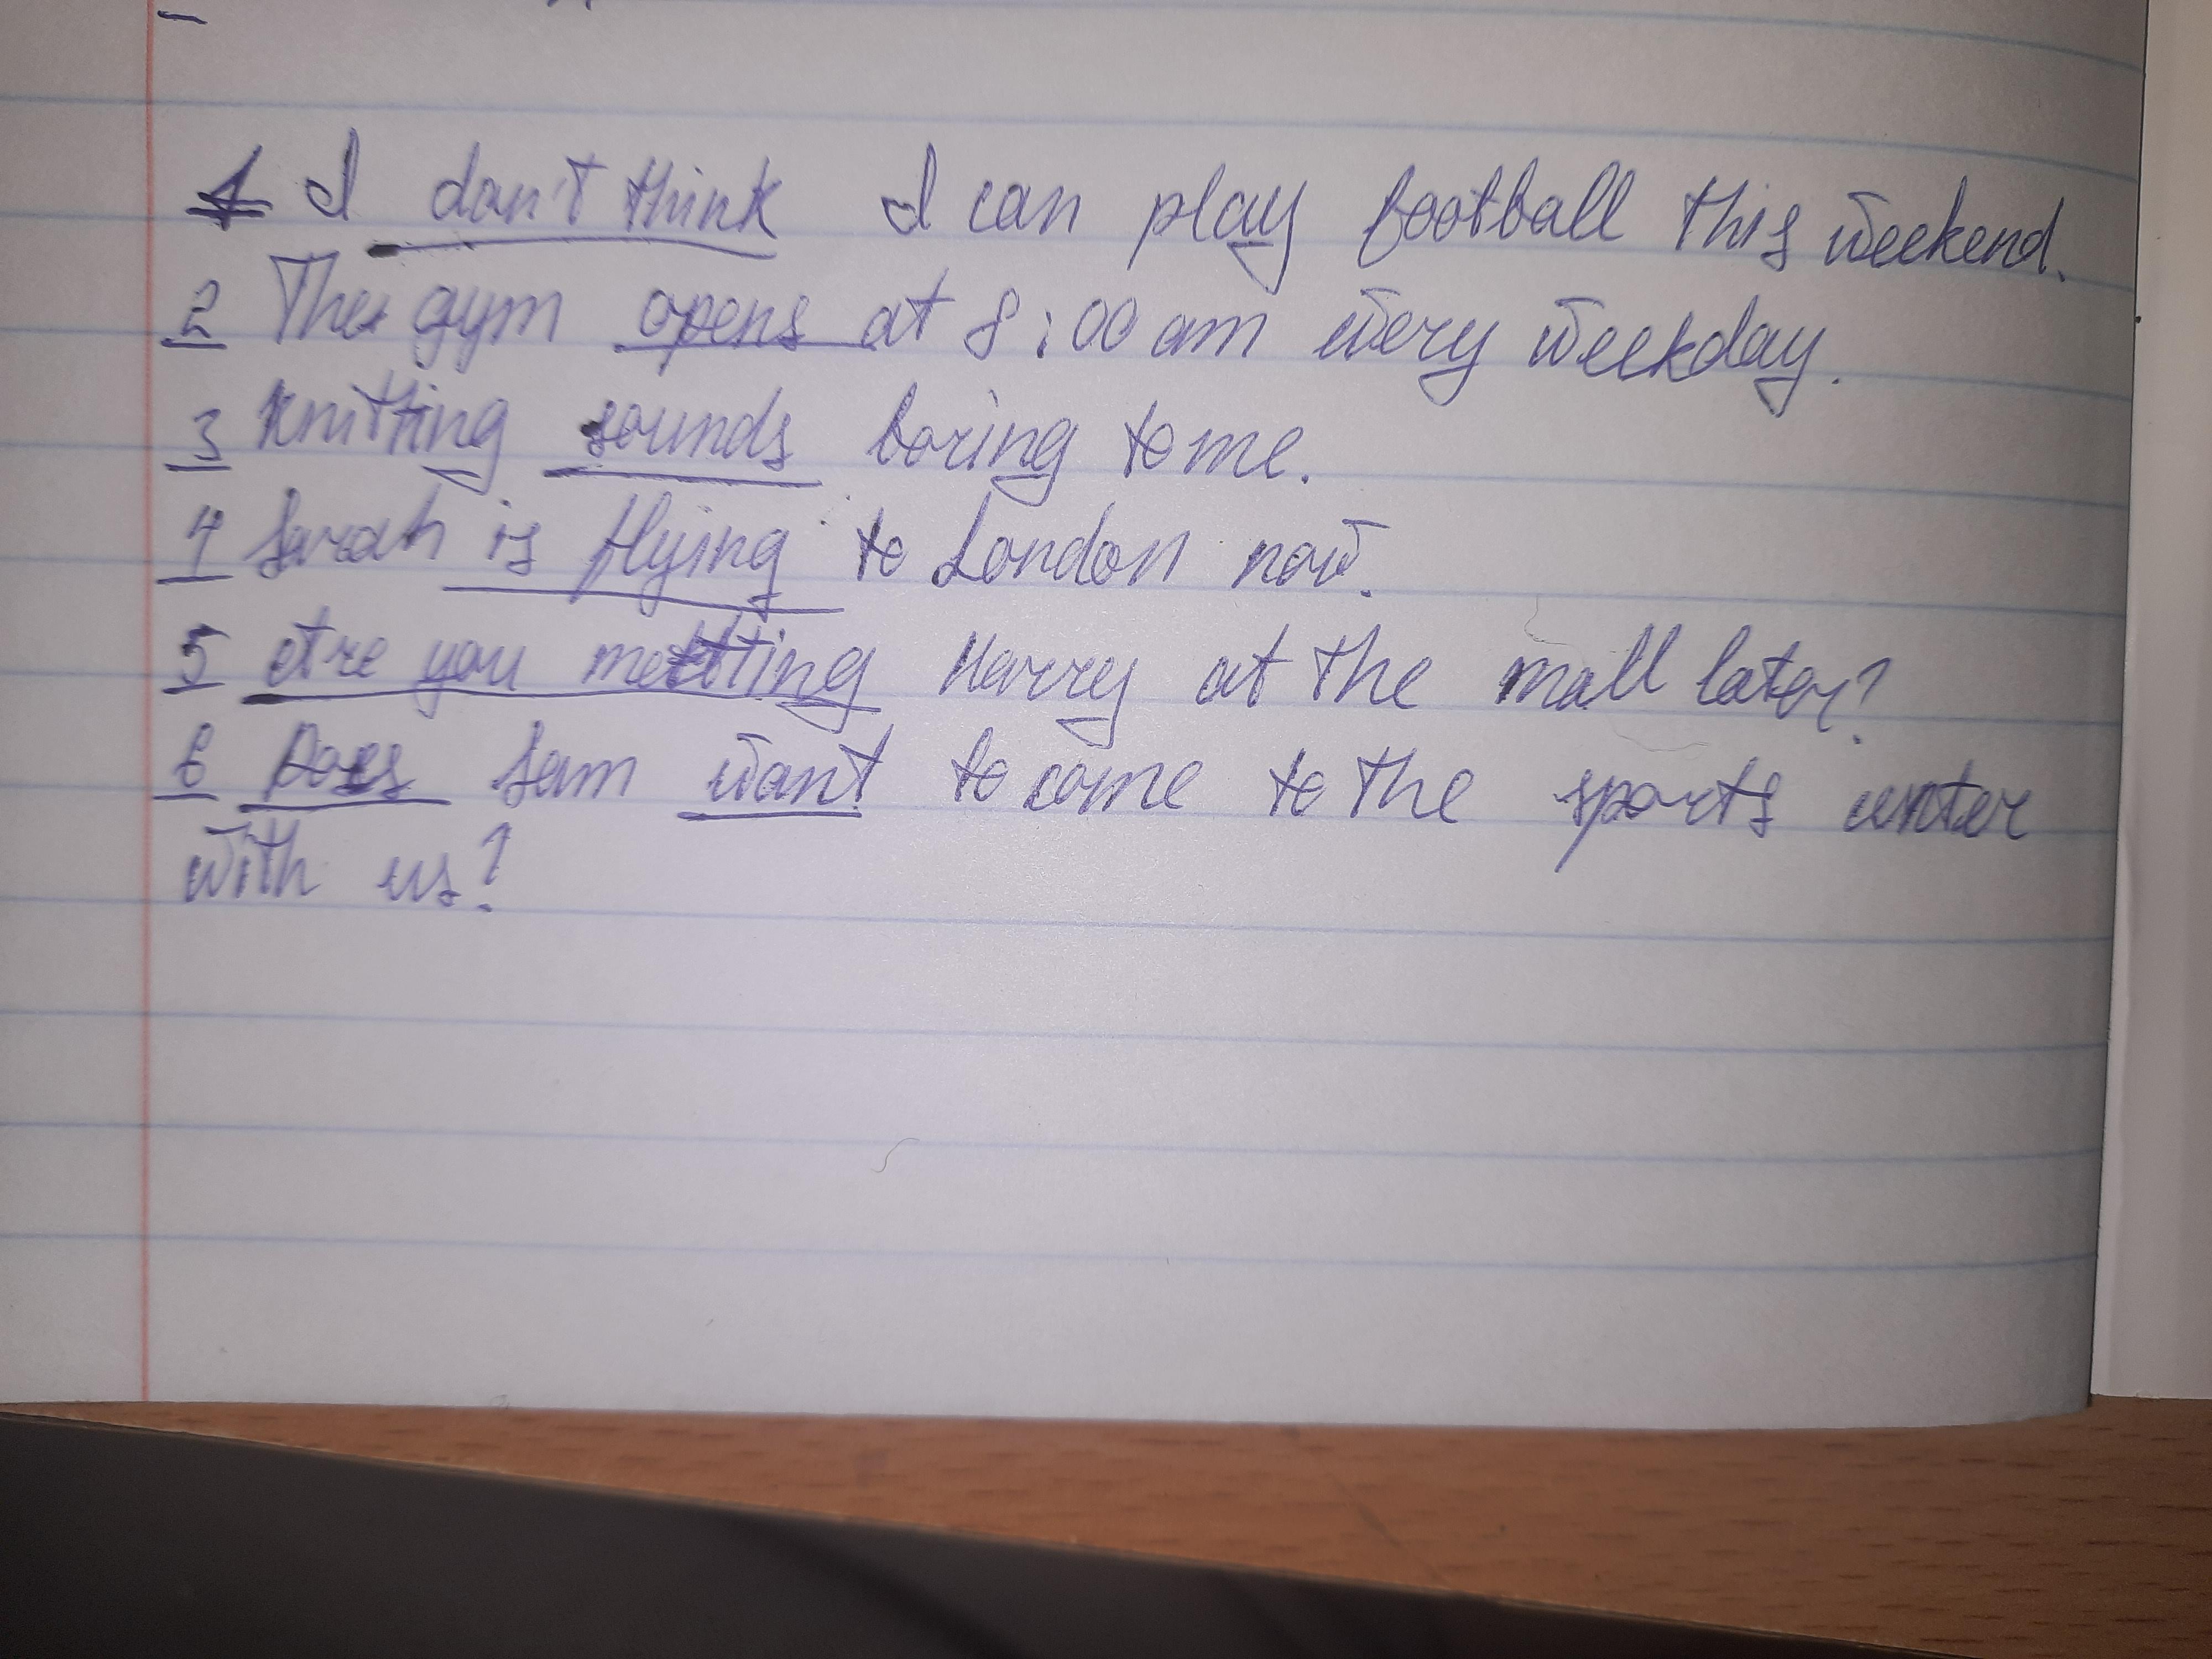 1 I don't think I can play football this weekend.
2 The gym opens at 8:00 am every weekday.
3 Knitting sounds boring to me.
4 Sarah is flying to London now.
5 Are you meetting Harry at the mall later?
6 Does Sam want to come to the sports center
with us?